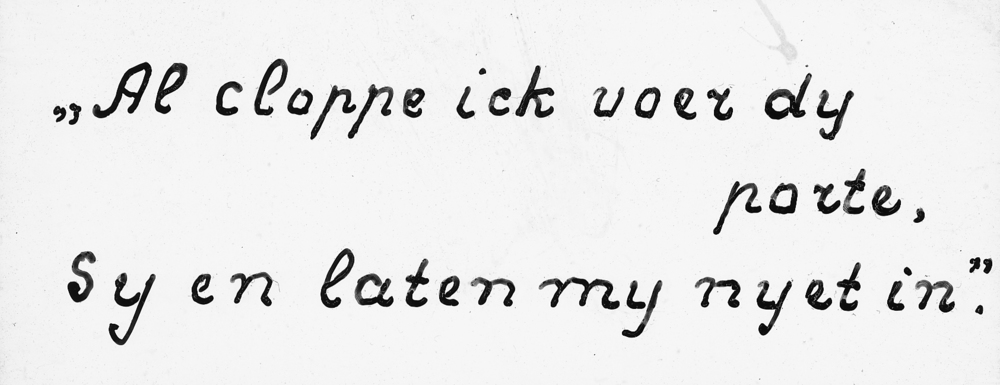 „Al cloppe ick voer dy
porte,
Sy en laten my nyet in”.